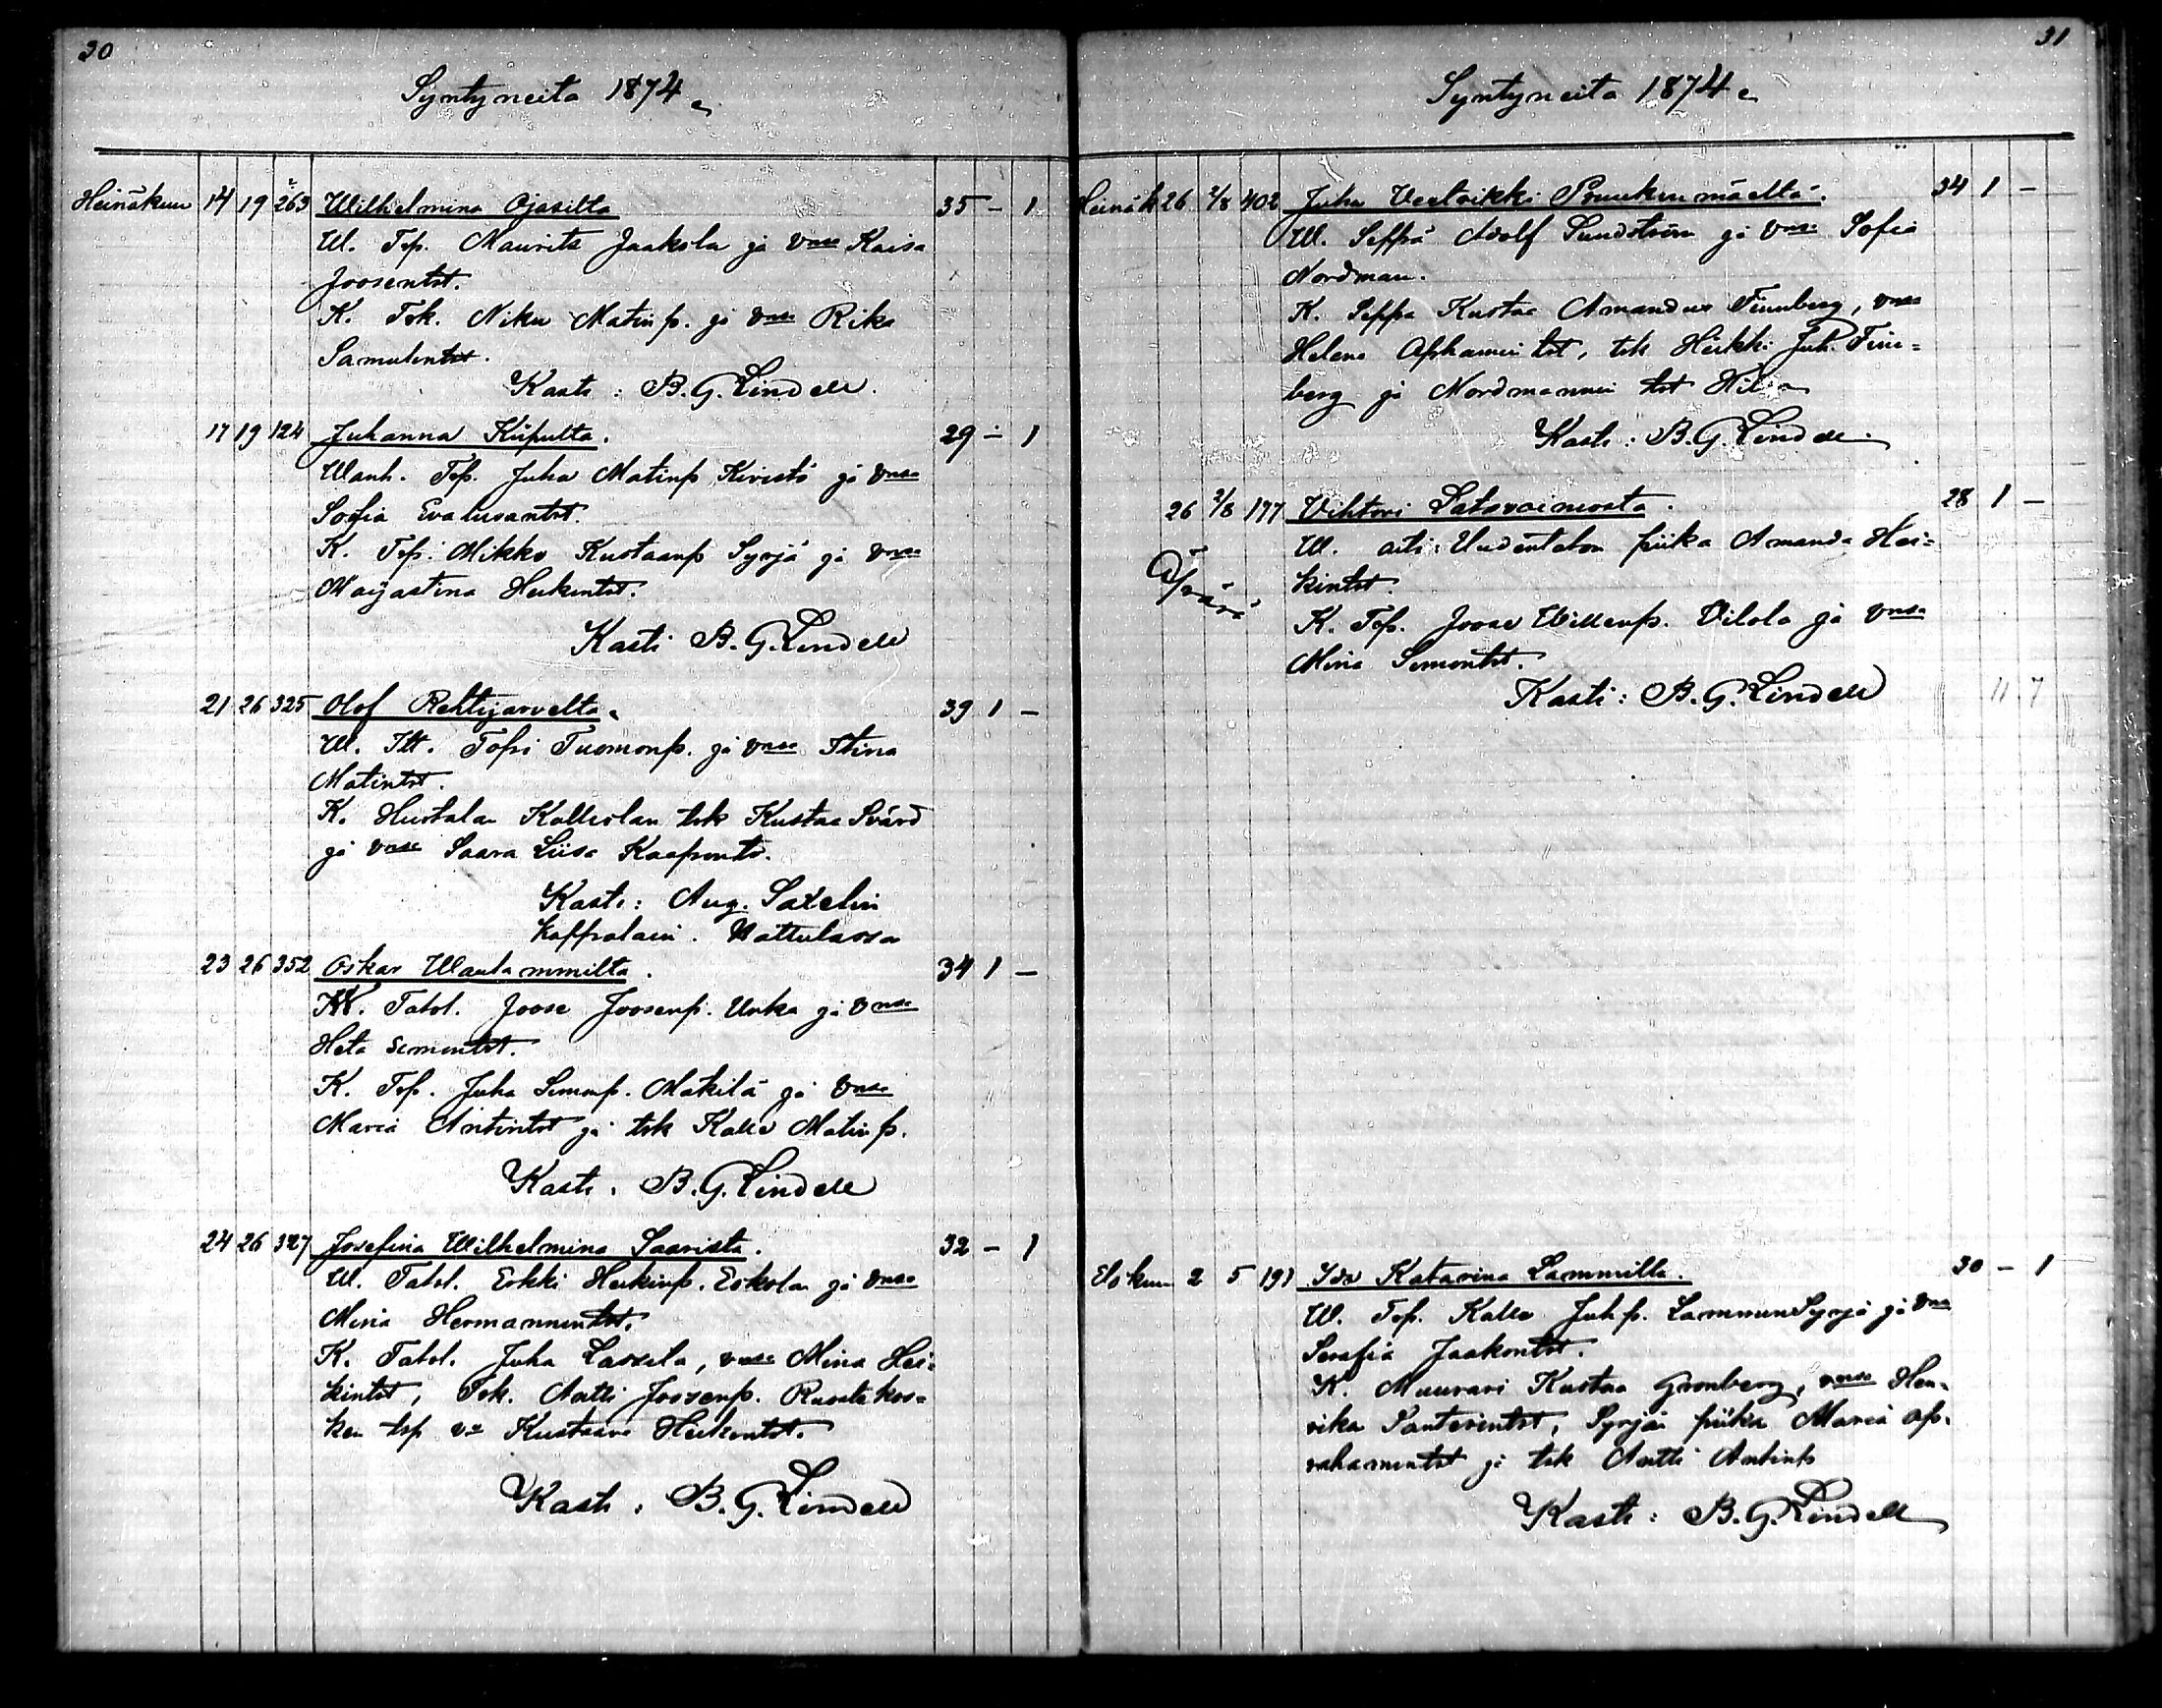 30
Syntyneitä 1874
Heinäkuu 14 19 263 Wilhelmina Ojasilta 35 – 1
W. Tsp. Maurits Jaakola ja vmsa Kaisa
Joosentst.
K. Tsk. Niku Matinp. ja vmsa Rika
Samulintst.
Kasti: B.G. Lindell.
17 19 124 Juhanna Kiipulta. 29 – 1
Wanh. Tsp. Juha Matinp Kivistö ja vmsa
Sofia Evalusantst.
K. Tsp. Mikko Kustaanp Syrjä ja vmsa
Maijastina Heikintst.
Kasti B.G. Lindell
21 26 325 Olof Rehtijärvelta. 39 1 –
W. Itt. Tofri Tuomonp. ja vmsa Stina
Matintst.
K. Hustalan Kalleslan tsk Kustaa Svärd
ja vmsa Saara Liisa Kaapronts.
Kasti: Aug. Saxelin
kappalain. Hattulassa
23 26 352 Oskar Wantammilta. 34 1 –
W. Tatol. Joose Joosenp. Unka ja vmsa
Heta Simontst.
K. Tsp. Juha Simonp. Mäkilä ja vmsa
Maria Antintst ja tsk Kalle Matinp.
Kasti. B.G. Lindell
24 26 327 Josefina Wilhelmina Saarista. 32 – 1
W. Tatol. Erkki Heikinp. Eskola ja vmsa
Miina Hermannintst.
K. Tatol. Juha Lassila, vmsa Miina Hei=
kintst, Tsk. Antti Joosenp. Ruostekos=
ken tsp va Kustaava Heikintst.
Kasti: B.G. Lindell
31
Syntyneitä 1874
Heinäk 26 2/8 402 Juha Vertvikki Pruukinmäeltä. 34 1 –
W. Seppä Adolf Sundström ja vmsa Sofia
Nordman.
K. Seppä Kustaa Amandus Finnberg, vmsa
Helena Aprhamin tst, tsk Heikki Juh. Fin=
berg ja Nordmannin tst Hilda
Kasti: B.G. Lindell
26 2/8 177 Vihtori Latovainiosta. 28 1 –
Äpärä
W. äiti: Uudentalon piika Amanda Hei=
kintst.
K. Tsp. Joose Willenp. Vilola ja vmsa
Miina Simontst.
Kasti: B.G. Lindell
11 7
Elokuu 2 5 191 Ida Katarina Lammilta. 30 – 1
W. Tsp. Kalle Juhp. LamminSyrjä ja vmsa
Serafia Jaakontst.
K. Muurari Kustaa Grönberg, vmsa Hen=
rika Santerintst, Syrjän piika Maria Ap=
rahamintst ja tsk Antti Antinp
Kasti: B.G. Lindell